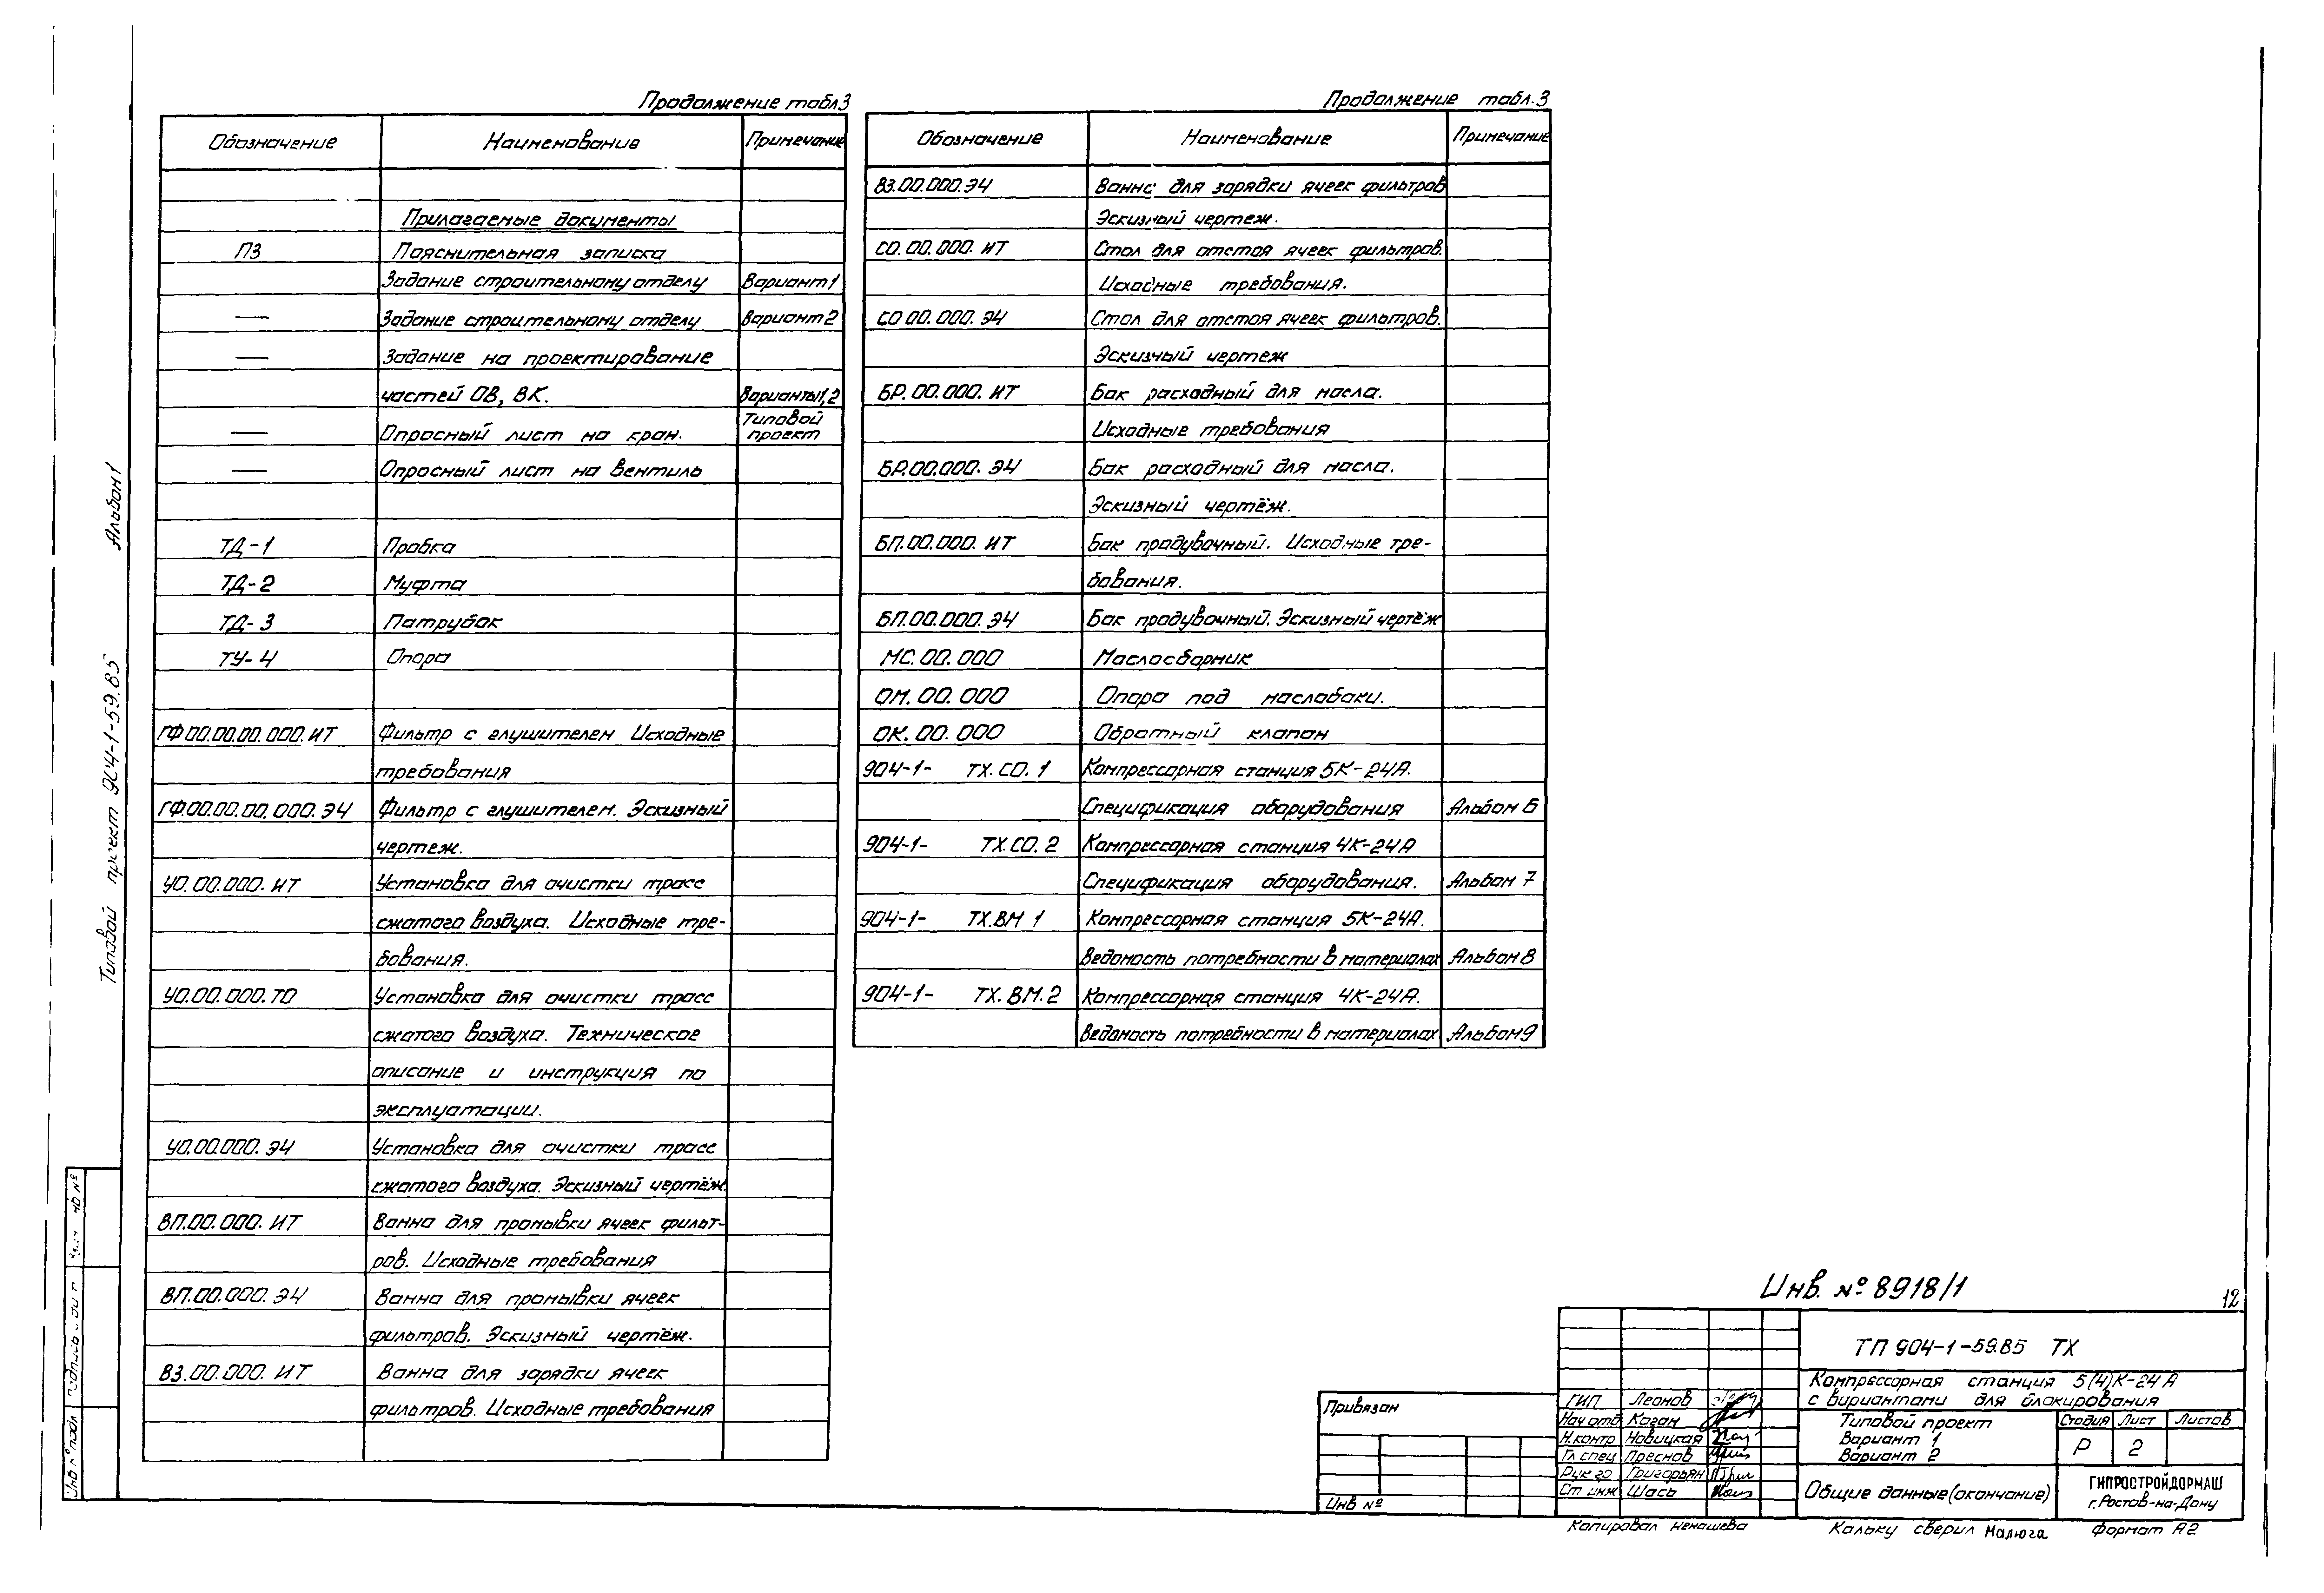 Продолжение табл3
Обозначение Наименование Примечание
Прилагаемые документы
ПЗ Пояснительная записка
Задание строительному отделу Вариант 1
— Задание строительному отделу Вариант 2
— Задание на проектирование
частей ОВ, ВК. Варианты1,2
— Опросный лист на кран. Типовой проект
— Опросный лист на вентиль
ТД-1 Пробка
ТД-2 Муфта
ТД-3 Патрубок
ТУ-4 Опора
ГФ00.00.00.000.ИТ Фильтр с глушителем Исходные
требования
ГФ.00.00.00.000.ЭЧ Фильтр с глушителем. Эскизный
чертеж.
УО.00.000.ИТ Установка для очистки трасс
сжатого воздуха. Исходные тре-
бования.
УО.00.000.ТО Установка для очистки трасс
сжатого воздуха. Техническое
описание и инструкция по
эксплуатации.
УО.00.000.ЭЧ Установка для очистки трасс
сжатого воздуха. Эскизный чертёж.
ВП.00.000.ИТ Ванна для промывки ячеек фильт-
ров. Исходные требования
ВП.00.000.ЭЧ Ванна для промывки ячеек
фильтров. Эскизный чертёж.
ВЗ.00.000.ИТ Ванна для зарядки ячеек
фильтров. Исходные требования
Продолжение табл.3
Обозначение Наименование Примечание
ВЗ.00.000.ЭЧ Ванна для зарядки ячеек фильтров
Эскизный чертеж.
СО.00.000.ИТ Стол для отстоя ячеек фильтров.
Исходные требования.
СО 00.000.ЭЧ Стол для отстоя ячеек фильтров.
Эскизный чертеж
БР.00.000.ИТ Бак расходный для масла.
Исходные требования
БР.00.000.ЭЧ Бак расходный для масла.
Эскизный чертёж.
БП.00.000.ИТ Бак продувочный. Исходные тре-
бования.
БП.00.000.ЭЧ Бак продувочный. Эскизный чертёж
МС.00.000 Маслосборник
ОМ.00.000 Опора под маслобаки.
ОК.00.000 Обратный клапан
904-1- ТХ.СО.1 Компрессорная станция 5К-24А.
Спецификация оборудования Альбом 6
904-1- ТХ.СО.2 Компрессорная станция 4К-24А
Спецификация оборудования. Альбом 7
904-1- ТХ.ВМ 1 Компрессорная станция 5К-24А.
Ведомость потребности в материалах Альбом 8
904-1- ТХ.ВМ.2 Компрессорная станция 4К-24А.
Ведомость потребности в материалах Альбом9
Альбом1
Типовой проект 904-1-59.85
Инв. № 8918/1
12
ТП 904-1-59.85 ТХ
Компрессорная станция 5(4)К-24А
с вариантами для блокирования
Типовой проект
Вариант 1
Вариант 2
Стадия Лист Листов
Р 2
Общие данные(окончание)
ГИПРОСТРОЙДОРМАШ
г.Ростов-на-Дону
ГИП Леонов
Нач отд Коган
Н.контр Новицкая
Гл спец Преснов
Рук гр Григорьян
Ст инж Шась
Привязан
Инв №
Инв № подл
Копировал Ненашева
Кальку сверил Малюга
Формат А2